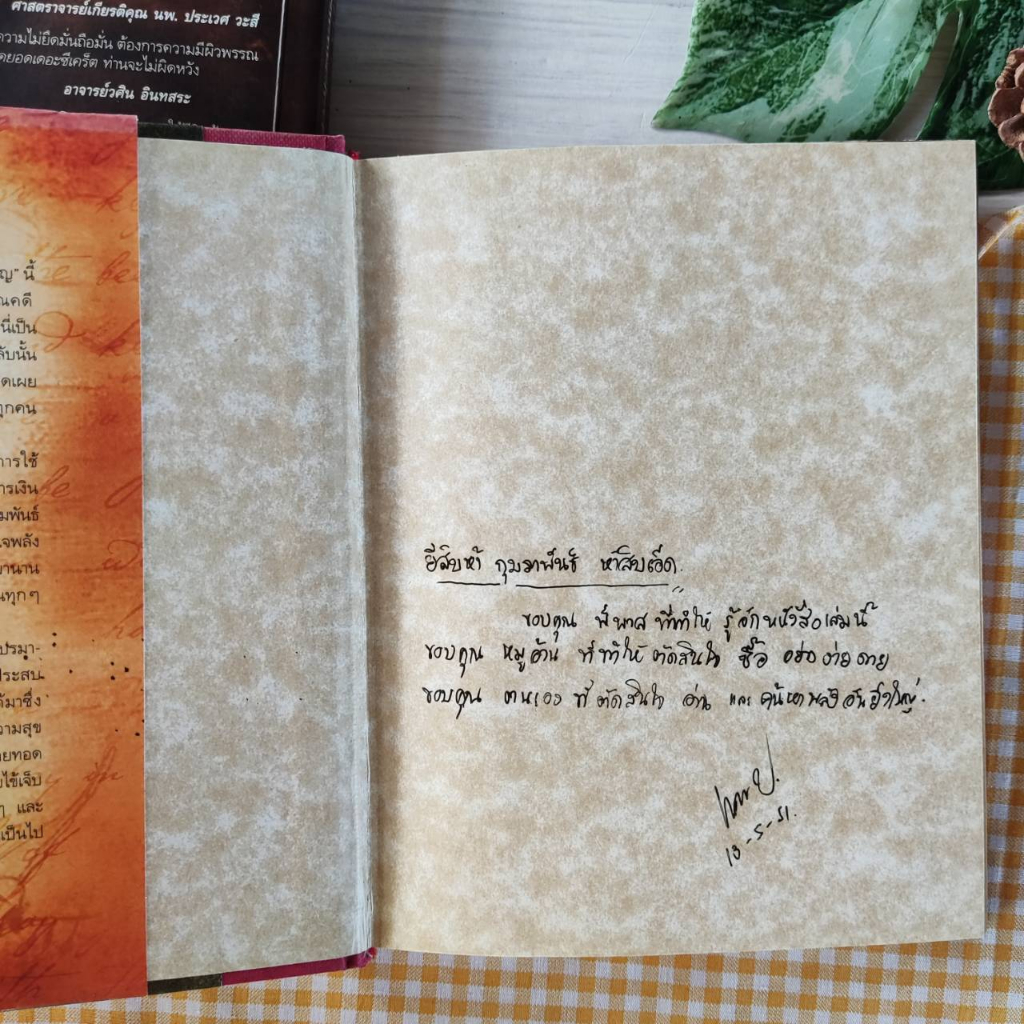 ศาสตราจารย์เกียรติคุณ นพ. ประเวศ วะสี
ความไม่ยึดมั่นถือมั่น ต้องการความมีผิวพรรณ
ยอดเดอะซีเคร็ต ท่านจะไม่ผิดหวัง
อาจารย์วศิน อินทสระ
ญ" นี้
ณคดี
นี่เป็น
ลับนั้น
ดเผย
ทุกคน
การใช้
ารเงิน
มพันธ์
จพลัง
านาน
นทุกๆ
ปรมา-
ระสบ
ด้มาซึ่ง
วามสุข
ายทอด
ยไข้เจ็บ
ๆ และ
เป็นไป
ยี่สิบห้า กุมภาพันธ์ ห้าสิบเอ็ด
ขอบคุณ ที่ทำให้ รู้จักหนังสือเล่มนี้
ขอบคุณ หมูอ้วน ที่ทำให้ ตัดสินใจ ซื้อ อย่างง่ายดาย
ขอบคุณ ตนเอง ที่ ตัดสินใจ อ่าน และ ค้นหาพลังอันยิ่งใหญ่.
13-5-51.